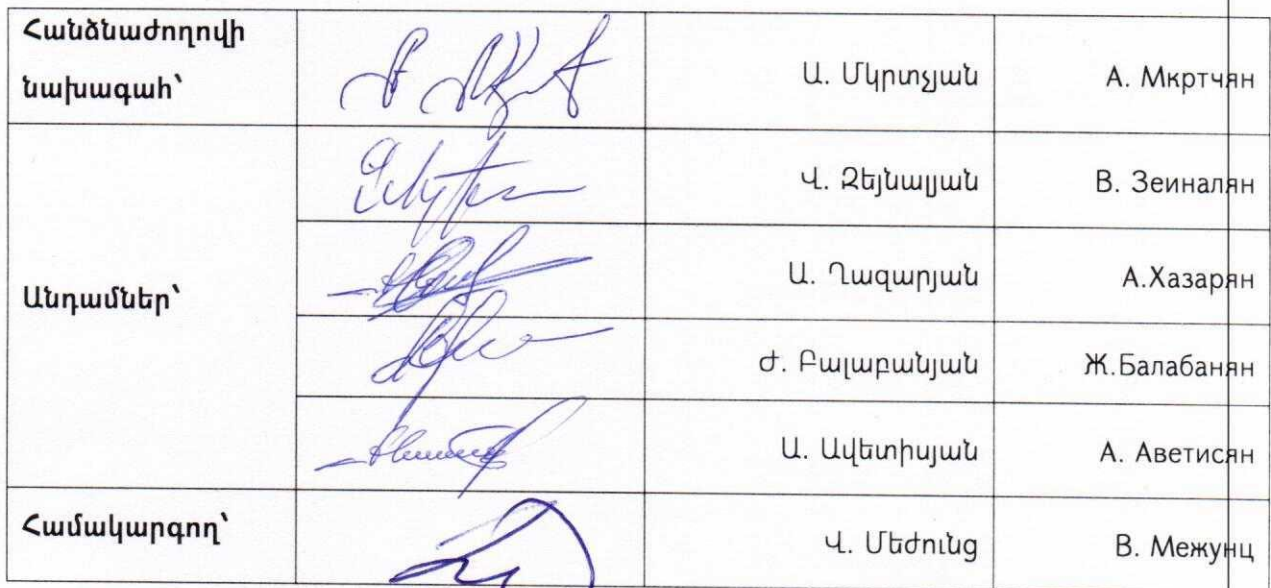 Հանձնաժողովի
նախագահ՝
Ա. Մկրտչյան
А. Мкртчян
Վ. Զեյնալյան
В. Зеиналян
Անդամներ՝
Ա. Ղազարյան
А.Хазарян
Ժ. Բալաբանյան
Ж.Балабанян
Ա. Ավետիսյան
А. Аветисян
Համակարգող՝
Վ. Մեժունց
В. Межунц